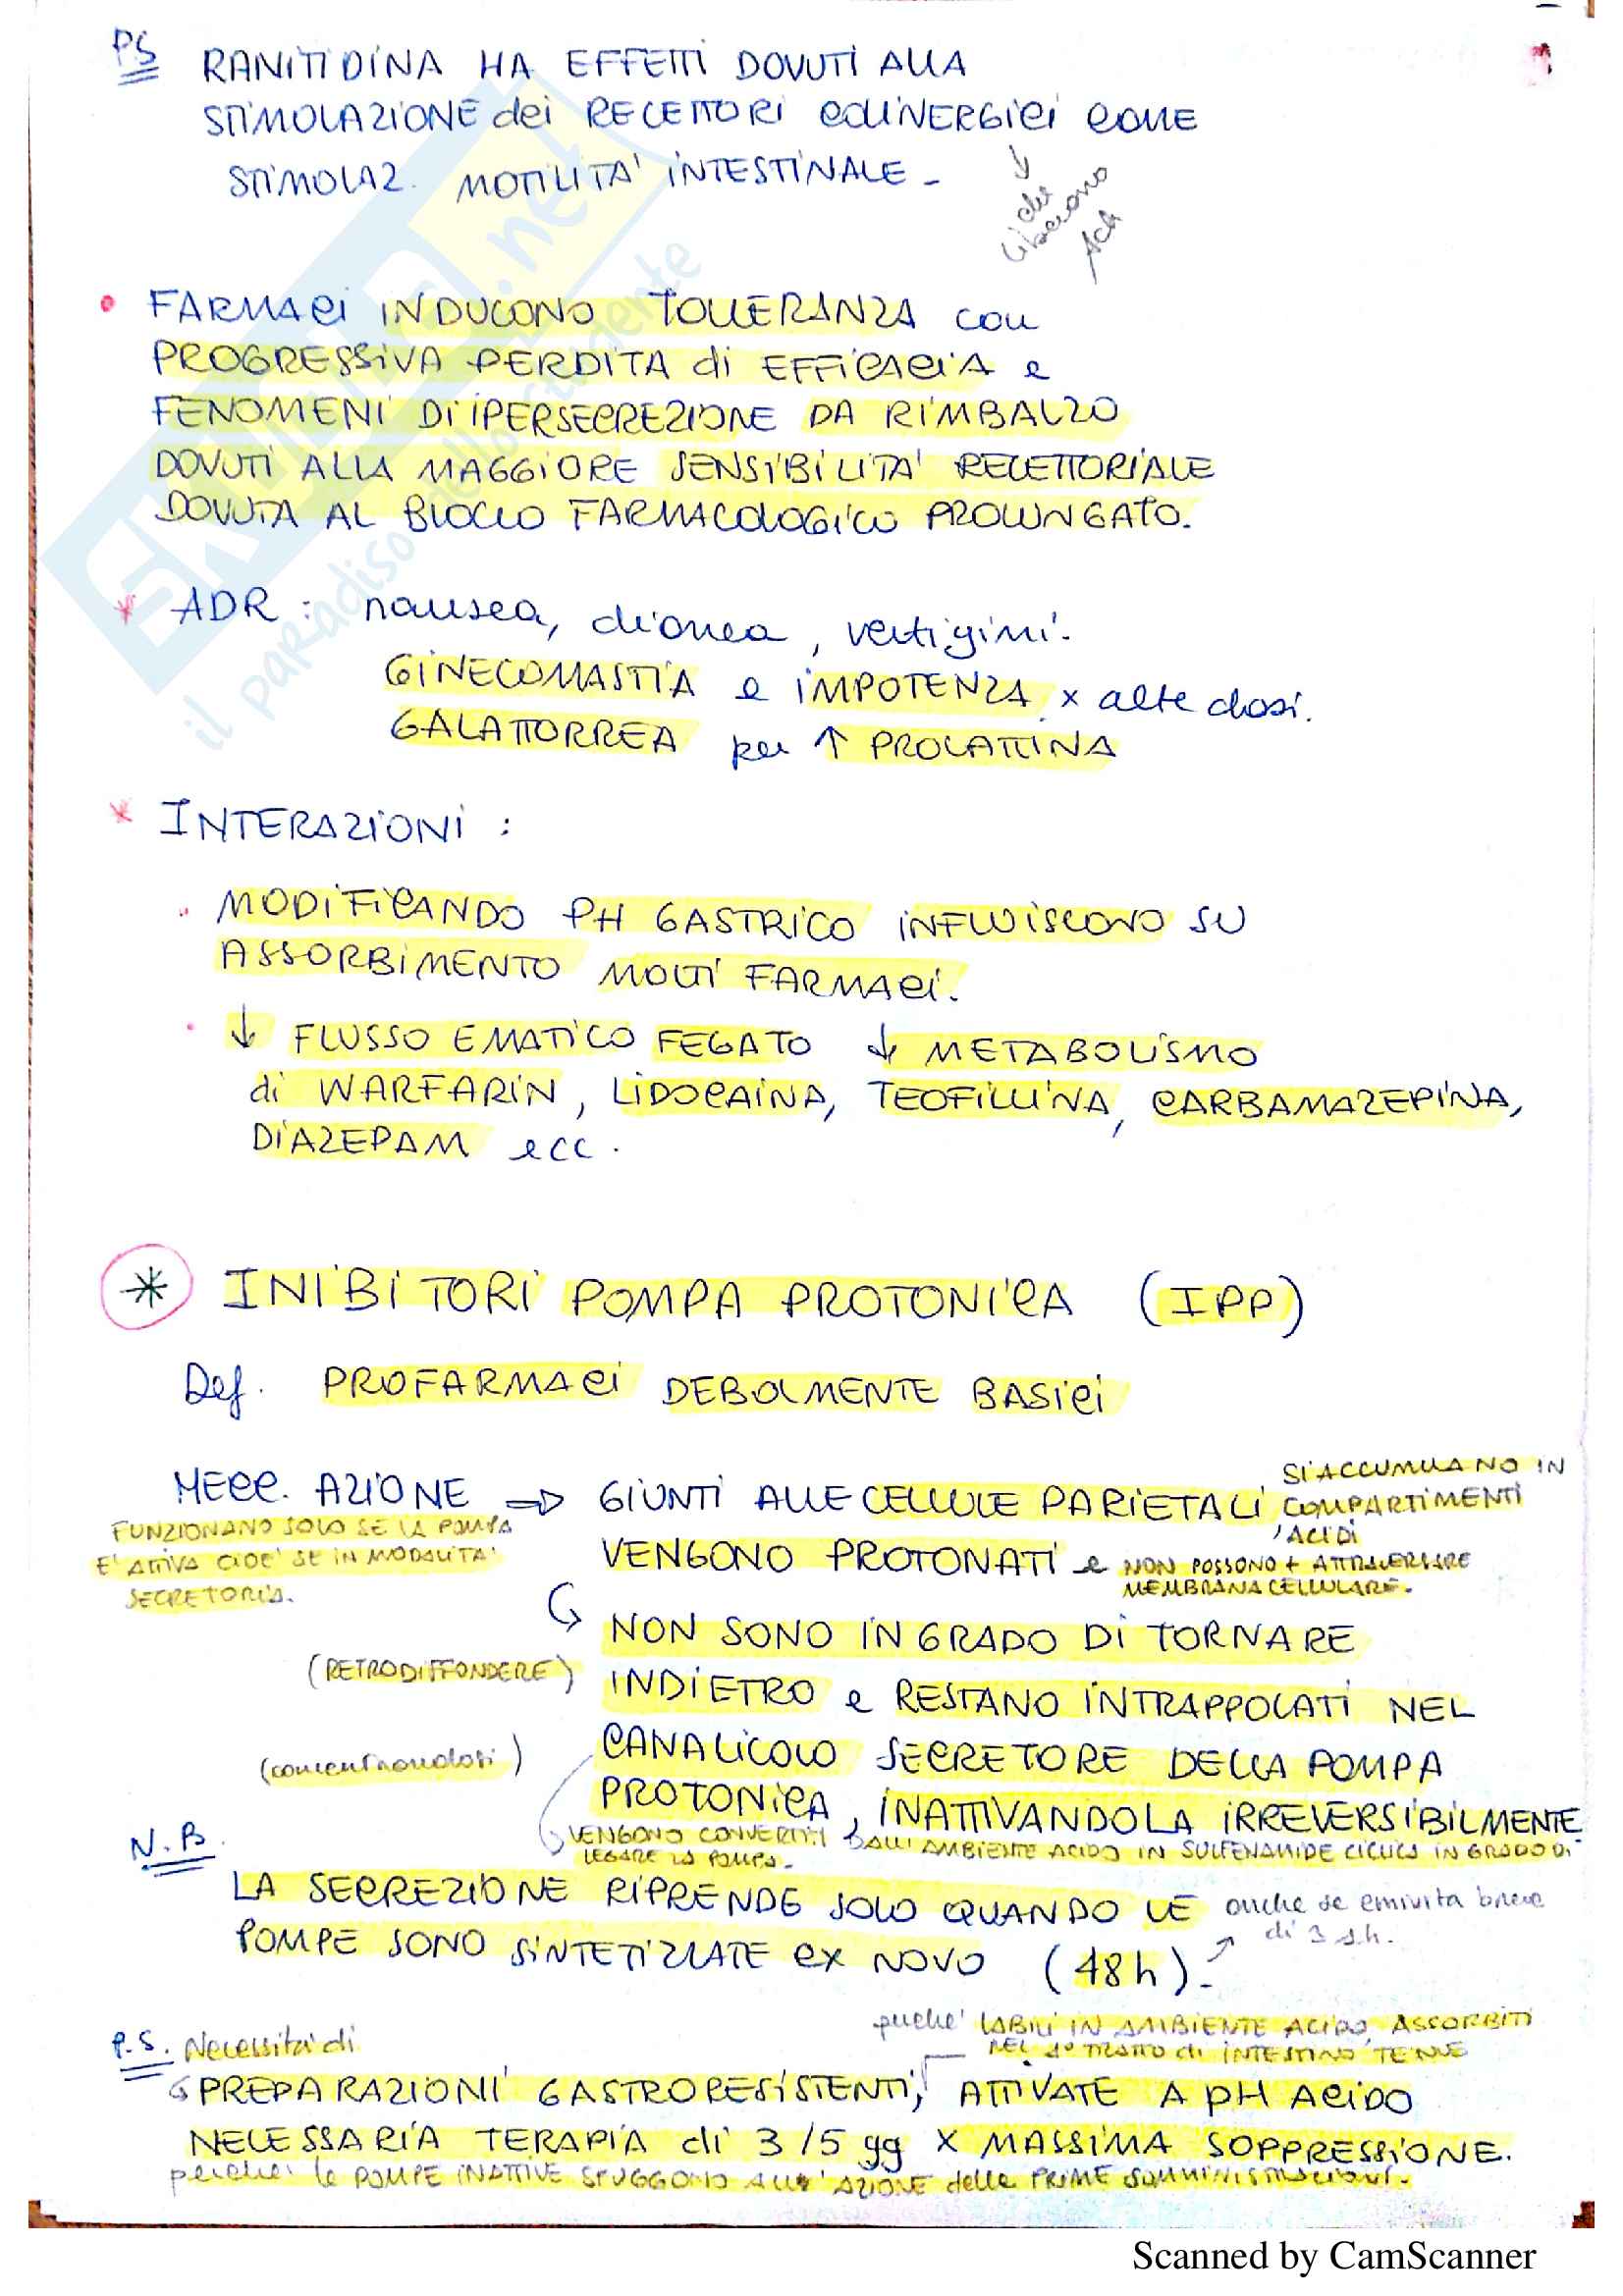 PS RANITIDINA HA EFFETTI DOVUTI ALLA
STIMOLAZIONE dei RECETTORI COLINERGICI COME
STIMOLAZ. MOTILITA' INTESTINALE -
↓ che
liberano
Ach
• FARMACI INDUCONO TOLLERANZA con
PROGRESSIVA PERDITA di EFFICACIA e
FENOMENI DI IPERSECREZIONE DA RIMBALZO
DOVUTI ALLA MAGGIORE SENSIBILITA' RECETTORIALE
DOVUTA AL BLOCCO FARMACOLOGICO PROLUNGATO.
* ADR : nausea, diarrea, vertigini.
GINECOMASTIA e IMPOTENZA x alte dosi.
GALATTORREA per ↑ PROLATTINA
* INTERAZIONI :
• MODIFICANDO PH GASTRICO INFLUISCONO SU
ASSORBIMENTO MOLTI FARMACI.
• ↓ FLUSSO EMATICO FEGATO ↓ METABOLISMO
di WARFARIN, LIDOCAINA, TEOFILLINA, CARBAMAZEPINA,
DIAZEPAM ecc.
* INIBITORI POMPA PROTONICA (IPP)
Def. PROFARMACI DEBOLMENTE BASICI
MECC. AZIONE ⇒ GIUNTI ALLE CELLULE PARIETALI SI ACCUMULANO IN
COMPARTIMENTI
ACIDI
FUNZIONANO SOLO SE LA POMPA
E' ATTIVA CIOE' SE IN MODALITA'
SECRETORIA.
VENGONO PROTONATI e NON POSSONO + ATTRAVERSARE
MEMBRANA CELLULARE.
NON SONO IN GRADO DI TORNARE
(RETRODIFFONDERE) INDIETRO e RESTANO INTRAPPOLATI NEL
(concentrandosi) CANALICOLO SECRETORE DELLA POMPA
PROTONICA, INATTIVANDOLA IRREVERSIBILMENTE
VENGONO CONVERTITI DALL'AMBIENTE ACIDO IN SULFENAMIDE CICLICA IN GRADO DI
LEGARE LA POMPA -
N.B.
LA SECREZIONE RIPRENDE SOLO QUANDO LE
POMPE SONO SINTETIZZATE EX NOVO (48h).
anche se emivita breve
di
P.S. Necessità di
perché LABILI IN AMBIENTE ACIDO, ASSORBITI
NEL 1° TRATTO di INTESTINO TENUE
PREPARAZIONI GASTRORESISTENTI, ATTIVATE A pH ACIDO
NECESSARIA TERAPIA di 3/5 gg X MASSIMA SOPPRESSIONE.
perché le POMPE INATTIVE SFUGGONO ALL'AZIONE delle PRIME SOMMINISTRAZIONI.
SKUOLA.net
il paradiso dello studente
Scanned by CamScanner